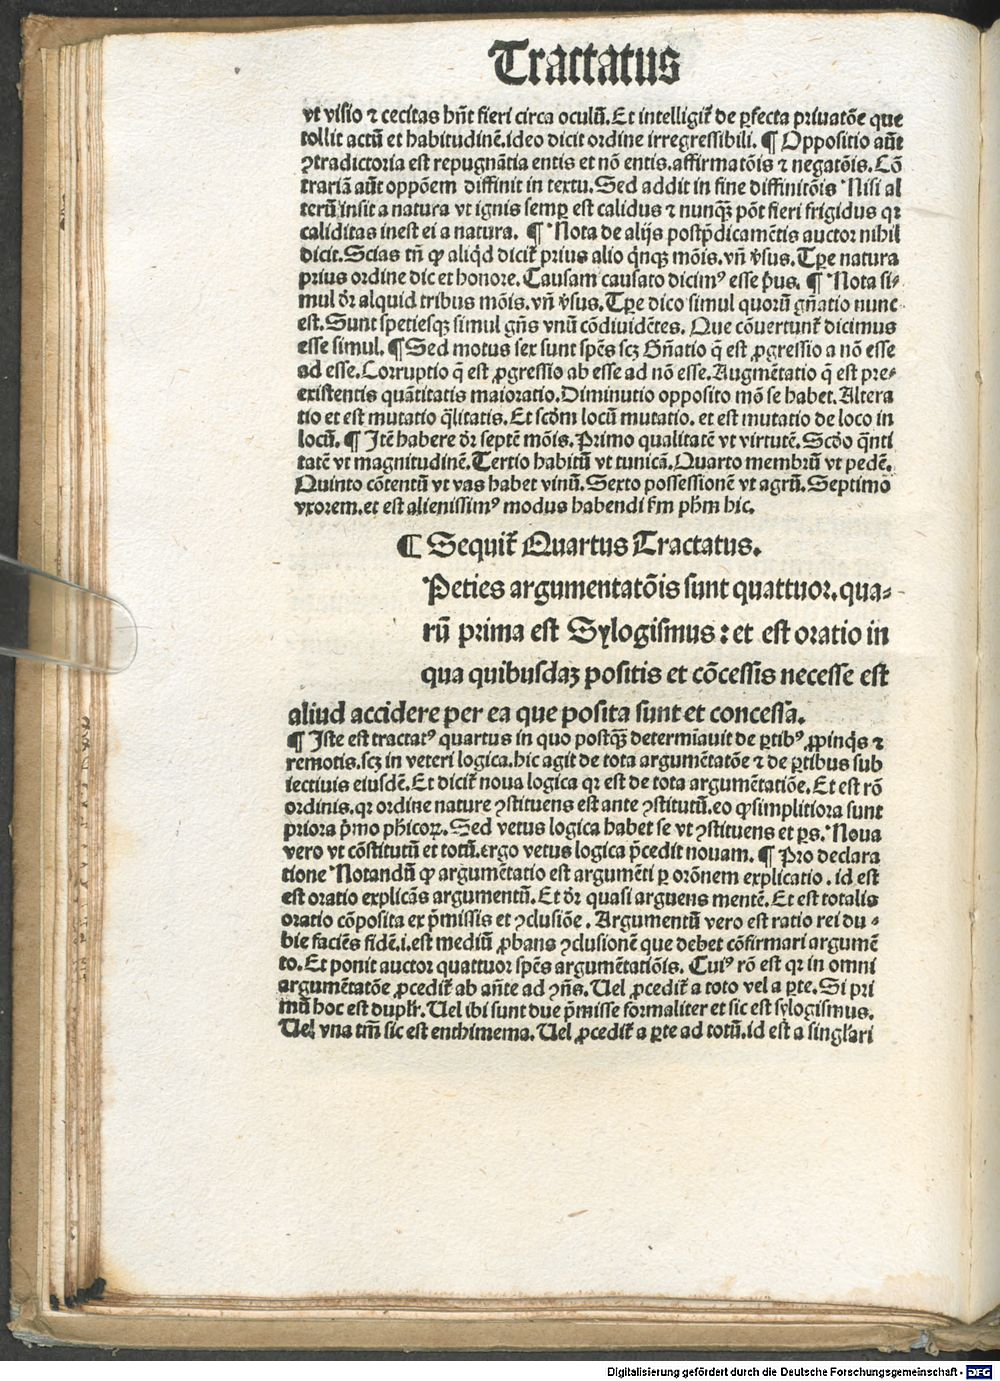 Tractatus
vt visio ⁊ cecitas hñt fieri circa oculũ. Et intelligit̃ de ꝑfecta priuatõe que
tollit actũ et habitudinẽ. ideo dicit ordine irregressibili. ¶ Oppositio aũt
ↄtradictoria est repugnãtia entis et nõ entis. affirmatõis ⁊ negatõis. Cõ
trariã aũt oppõem diffinit in textu. Sed addit in fine diffinitõis Nisi al
terũ insit a natura vt ignis semꝑ est calidus ⁊ nunqꝫ̃ põt fieri frigidus qꝛ
caliditas inest ei a natura. ¶ Nota de alijs postp̃dicamẽtis auctor nihil
dicit. Scias tñ ꝙ aliq̇d dicit̃ prius alio q̇nqꝫ mõis. vñ v̉sus. Tꝑe natura
prius ordine dic et honore. Causam causato dicimꝰ esse p̃us. ¶ Nota si-
mul dr̃ alquid tribus mõis. vñ v̉sus. Tꝑe dico simul quorũ gñatio nunc
est. Sunt spetiesqꝫ simul gñs vnũ cõdiuidẽtes. Que cõuertunt̃ dicimus
esse simul. ¶ Sed motus sex sunt spẽs scꝫ Gñatio q̃ est ꝓgressio a nõ esse
ad esse. Corruptio q̃ est ꝓgressio ab esse ad nõ esse. Augmẽtatio q̃ est pre-
existentis quãtitatis maioratio. Diminutio opposito mõ se habet. Altera
tio et est mutatio q̃litatis. Et scḋm locũ mutatio. et est mutatio de loco in
locũ. ¶ Itẽ habere dr̃ septẽ mõis. Primo qualitatẽ vt virtutẽ. Scḋo q̃nti
tatẽ vt magnitudinẽ. Tertio habitũ vt tunicã. Quarto membrũ vt pedẽ.
Quinto cõtentũ vt vas habet vinũ. Sexto possessionẽ vt agrũ. Septimõ
vxorem. et est alienissimꝰ modus habendi ẜm pḣm hic.
¶ Sequit̃ Quartus Tractatus.
Peties argumentatõis sunt quattuor. qua-
rũ prima est Sylogismus: et est oratio in
qua quibusdaꝫ positis et cõcessis necesse est
aliud accidere per ea que posita sunt et concessa.
¶ Iste est tractatꝰ quartus in quo postqꝫ̃ determĩauit de ꝑtibꝰ ꝓpinq̇s ⁊
remotis. scꝫ in veteri logica. hic agit de tota argumẽtatõe ⁊ de ꝑtibus sub
iectiuis eiusdẽ. Et dicit̃ noua logica qꝛ est de tota argumẽtatiõe. Et est rõ
ordinis. qꝛ ordine nature ↄstituens est ante ↄstitutũ. eo ꝙ simplitiora sunt
priora p̃mo pḣicoꝝ. Sed vetus logica habet se vt ↄstituens et ꝑs. Noua
vero vt cõstitutũ et totũ. ergo vetus logica p̃cedit nouam. ¶ Pro declara
tione Notandũ ꝙ argumẽtatio est argumẽti ꝑ orõnem explicatio. id est
est oratio explicãs argumentũ. Et dr̃ quasi arguens mentẽ. Et est totalis
oratio cõposita ex p̃missis et ↄclusiõe. Argumentũ vero est ratio rei du-
bie faciẽs fidẽ. i. est mediũ ꝓbans ↄclusionẽ que debet cõfirmari argumẽ
to. Et ponit auctor quattuor spẽs argumẽtatiõis. Cuiꝰ rõ est qꝛ in omni
argumẽtatõe ꝓcedit̃ ab añte ad ↄñs. Uel ꝓcedit̃ a toto vel a ꝑte. Si pri
mũ hoc est duplr̃. Uel ibi sunt due p̃misse formaliter et sic est sylogismus.
Uel vna tm̃ sic est enthimema. Uel ꝓcedit̃ a ꝑte ad totũ. id est a singl̃ari
Digitalisierung gefördert durch die Deutsche Forschungsgemeinschaft - DFG